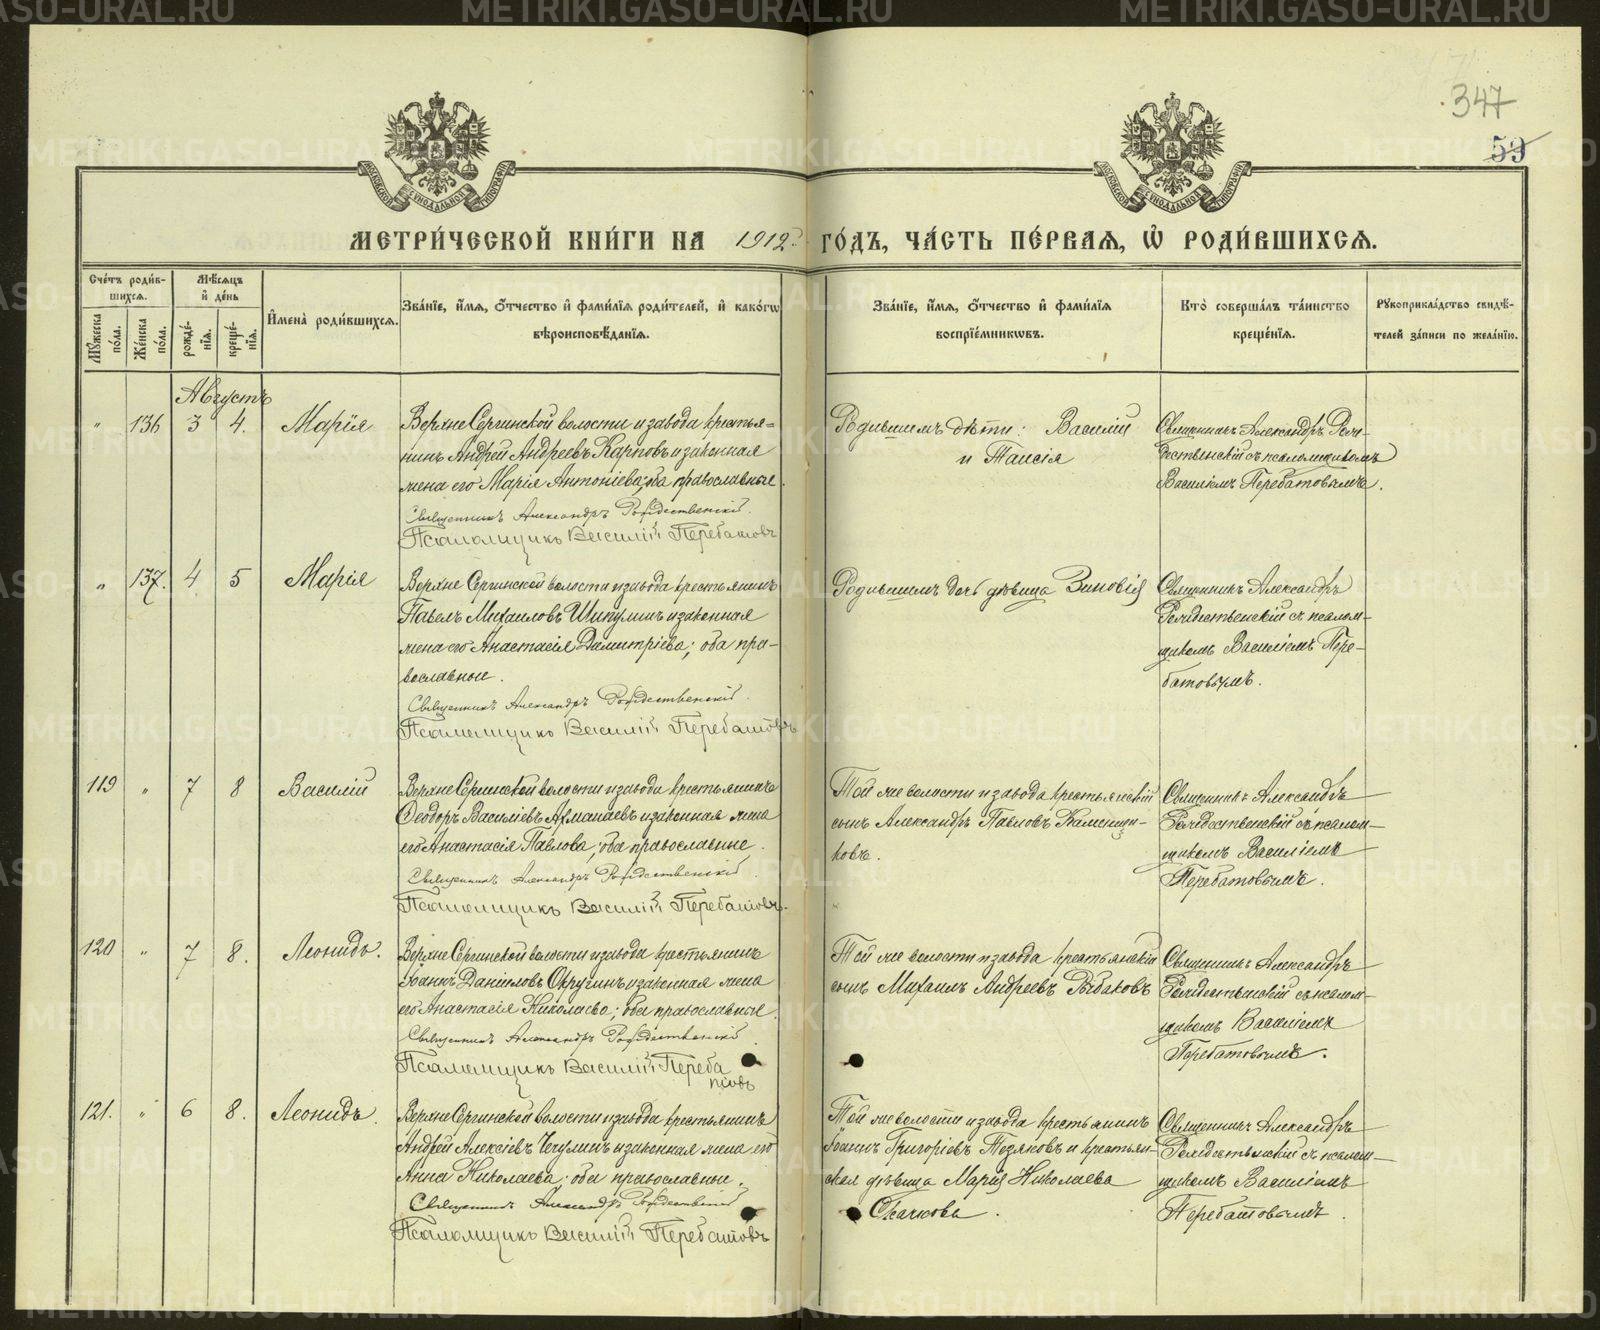 METRIKI.GASO-URAL.RU
347
59
МОСКОВСКОЙ СѴНОДАЛЬНОЙ ТИПОГРАФІИ
МОСКОВСКОЙ СѴНОДАЛЬНОЙ ТИПОГРАФІИ
МЕТРИ́ЧЕСКОЙ КНИ́ГИ НА 1912 ГО́ДЪ, ЧА́СТЬ ПЕ́РВАЯ, Ѿ РОДИ́ВШИХСЯ.
Сче́тъ роди́в-
шихся.
Мѣ́сяцъ
и҆ де́нь
Мꙋ́жеска по́ла.
Же́нска по́ла.
рожде́нїѧ.
креще́нїѧ.
И҆мена̀ роди́вшихся.
Зва́нїе, и҆́мѧ, ѻ҆́тчество и҆ фами́лїѧ роди́телей, и҆ како́гѡ
вѣроисповѣ́данїѧ.
Зва́нїе, и҆́мѧ, ѻ҆́тчество и҆ фами́лїѧ
воспрїе́мникѡвъ.
Кто̀ соверша́лъ та́инство
креще́нїѧ.
Рꙋкоприкла́дство свидѣ́-
телей за́писи по жела́нїю.
Августъ
" 136 3 4. Марія
Верхне Сергинской волости и завода крестья=
нинъ Андрей Андреевъ Карповъ и законная
жена его Марія Антоніева; оба православные.
Священникъ Александръ Рождественскій.
Псаломщикъ Василій Перебатовъ
Родившимъ дѣти: Василій
и Таисія
Священникъ Александръ Рож-
дественскій съ псаломщикомъ
Василіемъ Перебатовымъ.
" 137. 4 5 Марія
Верхне Сергинской волости и завода крестьянинъ
Павелъ Михаиловъ Шипулинъ и законная
жена его Анастасія Димитріева; оба пра-
вославные.
Священникъ Александръ Рождественскій.
Псаломщикъ Василій Перебатовъ
Родившимъ дочь дѣвица Зиновія
Священникъ Александръ
Рождественскій съ псалом-
щикомъ Василіемъ Пере-
батовымъ.
119 " 7 8 Василій
Верхне Сергинской волости и завода крестьянинъ
Ѳеодоръ Василіевъ и законная жена
его Анастасія Павлова; оба православные.
Священникъ Александръ Рождественскій.
Псаломщикъ Василій Перебатовъ.
Той же волости и завода крестьянскій
сынъ Александръ Павловъ Каменщи-
ковъ.
Священникъ Александръ
Рождественскій съ псалом-
щикомъ Василіемъ
Перебатовымъ.
120 " 7 8. Леонидъ.
Верхне Сергинской волости и завода крестьянинъ
Іоаннъ Даниловъ Округинъ и законная жена
его Анастасія Николаева; оба православные.
Священникъ Александръ Рождественскій.
Псаломщикъ Василій Переба
товъ
Той же волости и завода крестьянскій
сынъ Михаилъ Андреевъ Рыбаковъ
Священникъ Александръ
Рождественскій съ псалом-
щикомъ Василіемъ
Перебатовымъ.
121. " 6 8. Леонидъ.
Верхне Сергинской волости и завода крестьянинъ
Андрей Алексіевъ Чекулинъ и законная жена его
Анна Николаева; оба православные.
Священникъ Александръ Рождественскій
Псаломщикъ Василій Перебатовъ
Той же волости и завода крестьянинъ
Іоаннъ Григоріевъ Тезяковъ и крестьян-
ская дѣвица Марія Николаева
Скачкова.
Священникъ Александръ
Рождественскій съ псалом-
щикомъ Василіемъ
Перебатовымъ.